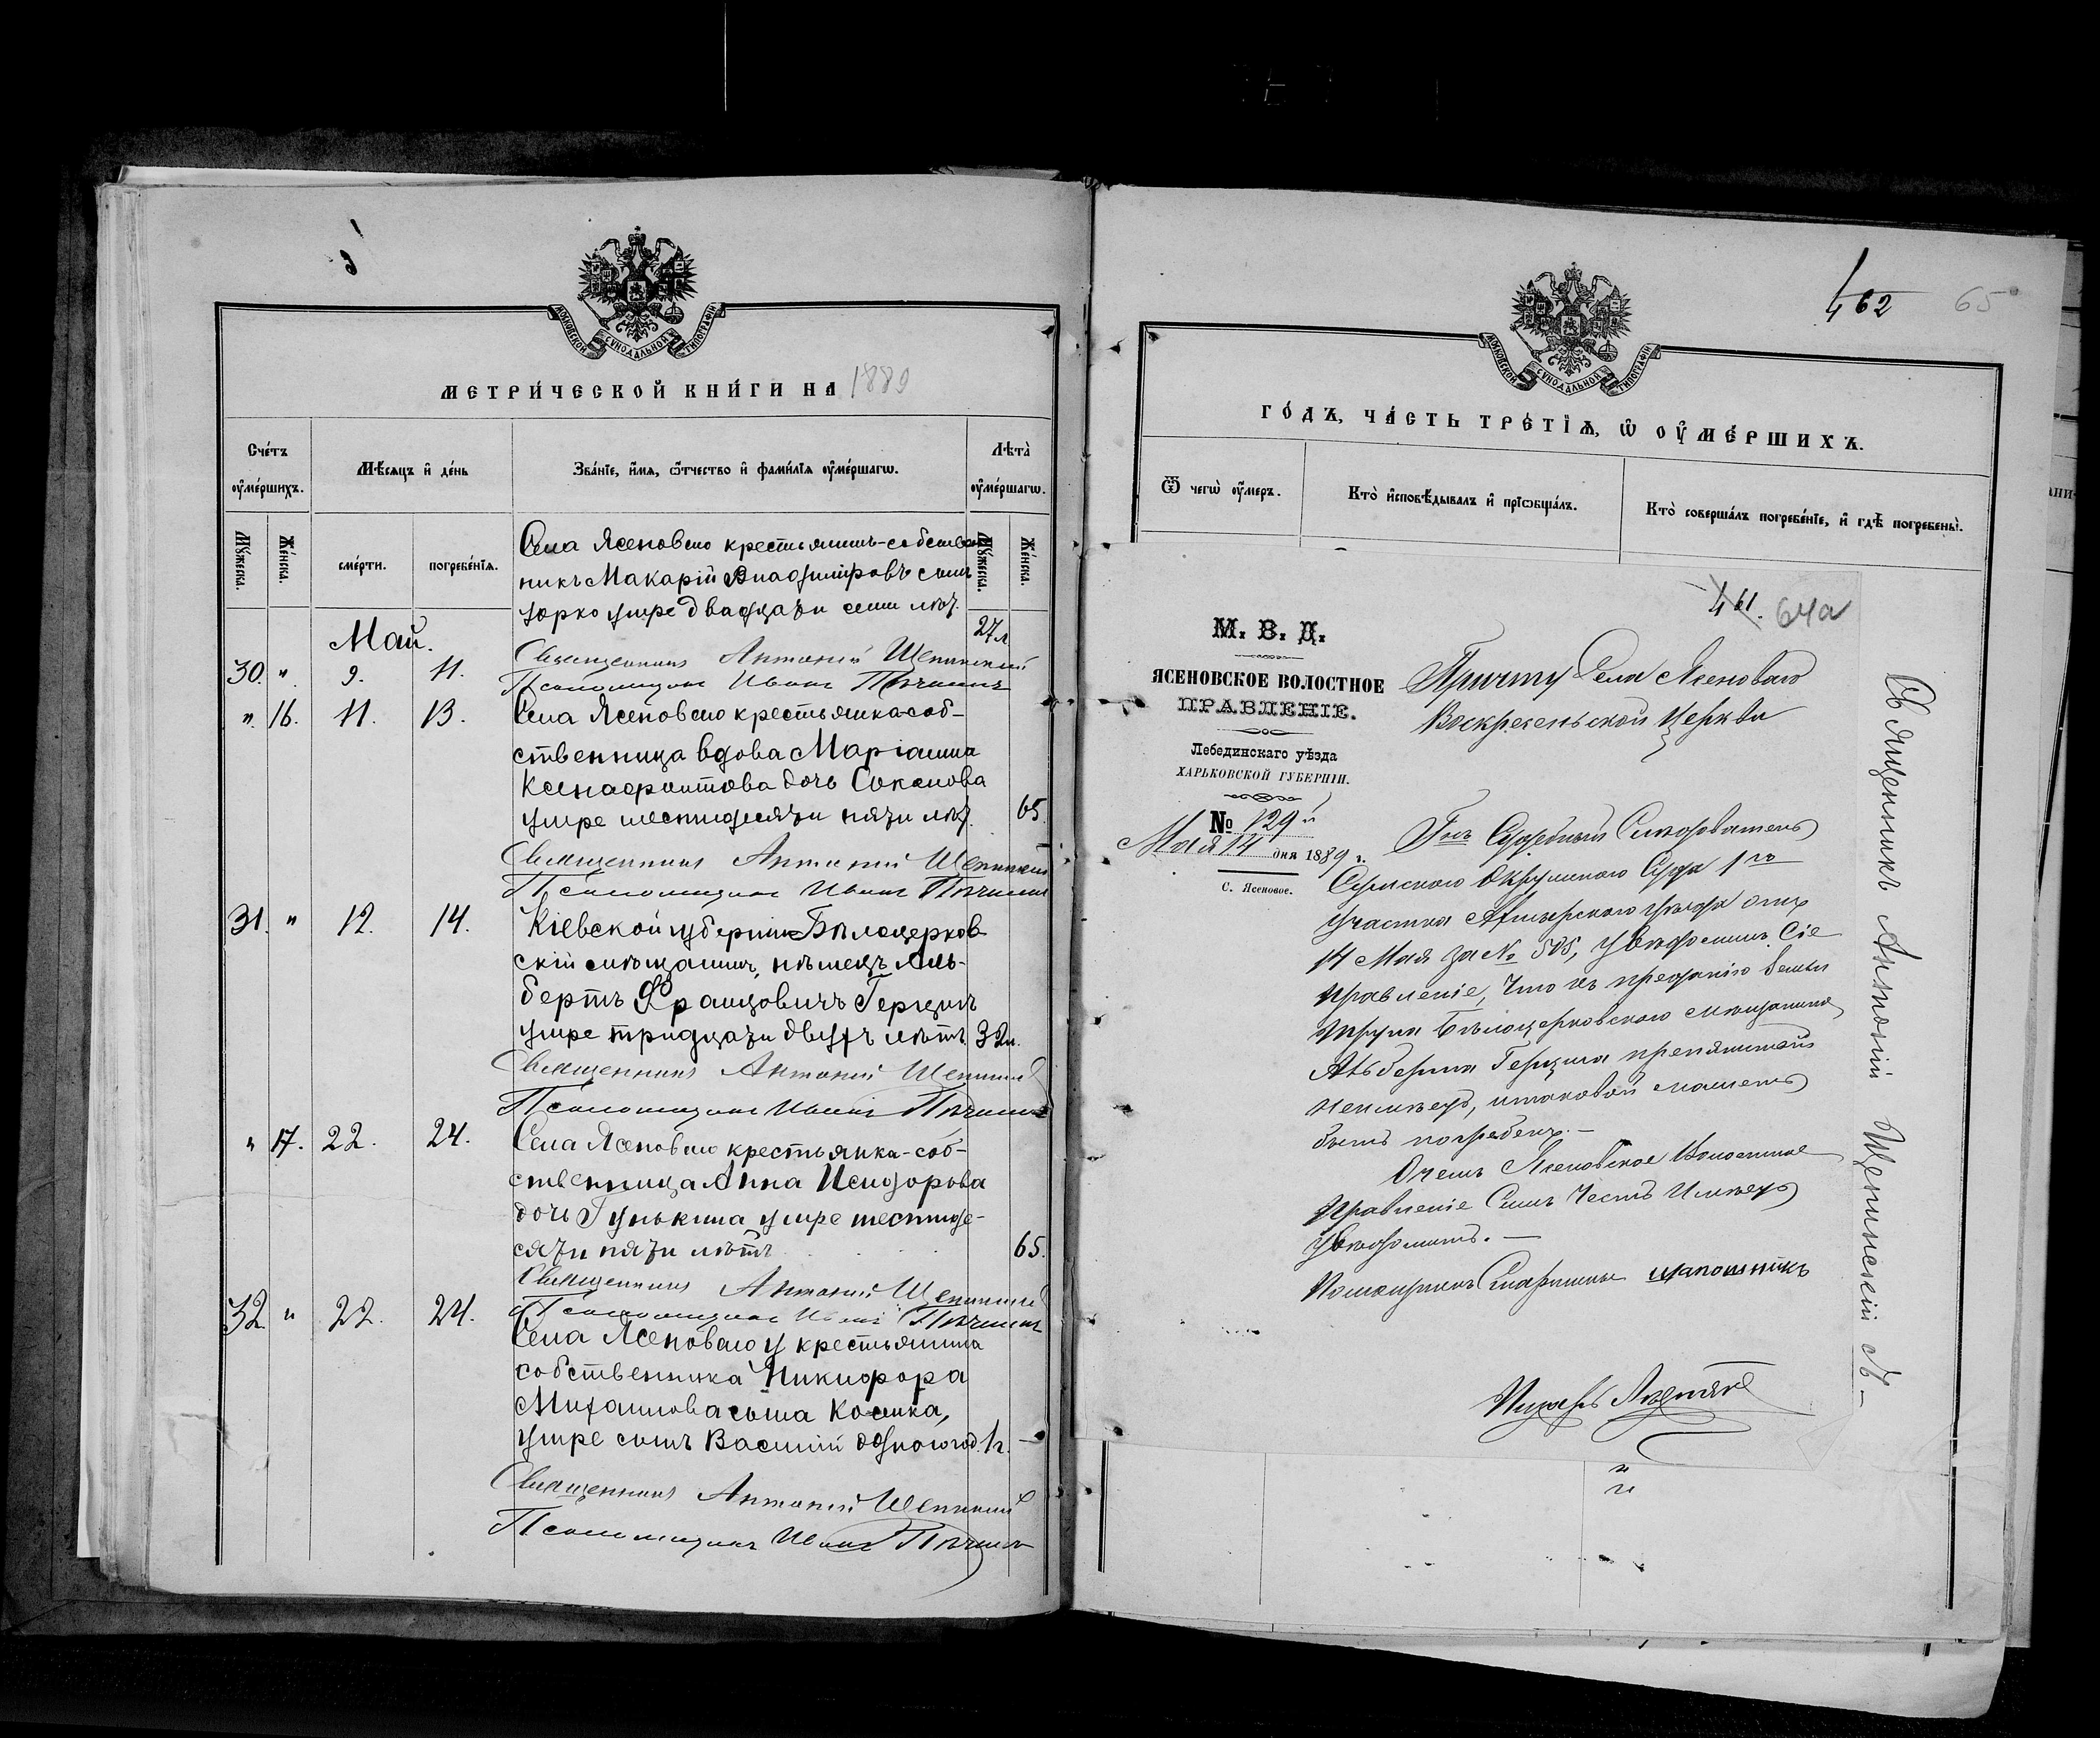 МОСКОВСКОЙ СѴНОДАЛЬНОЙ ТИПОГРАФІИ
МЕТРИ́ЧЕСКОЙ КНИ́ГИ НА 1889
Сче́тъ ᲂу҆ме́ршихъ.
Мѣ́сяцъ и҆ де́нь
Зва́нїе, и҆́мя, ѻ҆́тчество и҆ фами́лїя ᲂу҆ме́ршагѡ.
Лѣта̀ ᲂу҆ме́ршагѡ.
Мꙋ́жеска.
Же́нска.
сме́рти.
погребе́нїя.
Мꙋ́жеска.
Же́нска.
Села Ясеноваго крестьянинъ-собствен
никъ Макарій Владиміровъ сынъ
умре двадцати семи лѣт.
27 л
Май.
30. " 9. 11.
Священникъ Антоній Щепинскій
Псаломщикъ Иванъ
" 16. 11. 13.
Села Ясеноваго крестьянка-соб-
ственница вдова Маріанна
Ксенофонтова дочь Соколова
умре шестидесяти пяти лѣт. 65
Священникъ Антоній Щепинскій
Псаломщикъ Иванъ
31. " 12. 14.
Кіевской губерніи Бѣлоцерков
скій мѣщанинъ, нѣмецъ Аль-
бертъ Францовичъ Герцигъ
умре тридцати двухъ лѣтъ 32 л.
Священникъ Антоній Щепинскій
Псаломщикъ Иванъ
" 17. 22. 24.
Села Ясеноваго крестьянка-соб-
ственница Анна Исидорова
дочь Гунькина умре шестиде-
сяти пяти лѣтъ 65.
Священникъ Антоній Щепинскій
Псаломщикъ Иванъ
32 " 22. 24.
Села Ясеноваго у крестьянина
собственника Никифора
Михаилова сына
умре сынъ Василій однаго год. 1 г.
Священникъ Антоній Щепинскій
Псаломщикъ Иванъ
462 65
МОСКОВСКОЙ СѴНОДАЛЬНОЙ ТИПОГРАФІИ
ГО́ДЪ, ЧА́СТЬ ТРЕ́ТЇЯ, Ѡ҆ ОУ҆МЕ́РШИХЪ.
Ѿ чегѡ̀ ᲂу҆́меръ.
Кто̀ и҆сповѣ́дывалъ и҆ прїѡбща́лъ.
Кто̀ соверша́лъ погребе́нїе, и҆ гдѣ̀ погребены̀.
461. 64а
М. В. Д.
ЯСЕНОВСКОЕ ВОЛОСТНОЕ
ПРАВЛЕНІЕ.
Лебединскаго уѣзда
ХАРЬКОВСКОЙ ГУБЕРНІИ.
№ 729
Мая 14 дня 1889 г.
С. Ясеновое.
Причту Села Ясеноваго
Воскресенской церкви
Гнъ Судебный Слѣдователь
Сумского Окружнаго Суда 1го
участка Ахтырского уѣзда отъ
14 Мая за № 505, увѣдомилъ Сіе
Правленіе, что къ преданію Земли
трупа Бѣлоцерковского мѣщанина
Альберта Герцига препятствій
неимѣетъ, итаковой можетъ
быть погребенъ.—
О чемъ Ясеновское Волостное
Правленіе Симъ Честь Имѣетъ
увѣдомить.—
Помощникъ Старшины Шапошникъ
Писарь
Священникъ Антоній Щепинскій